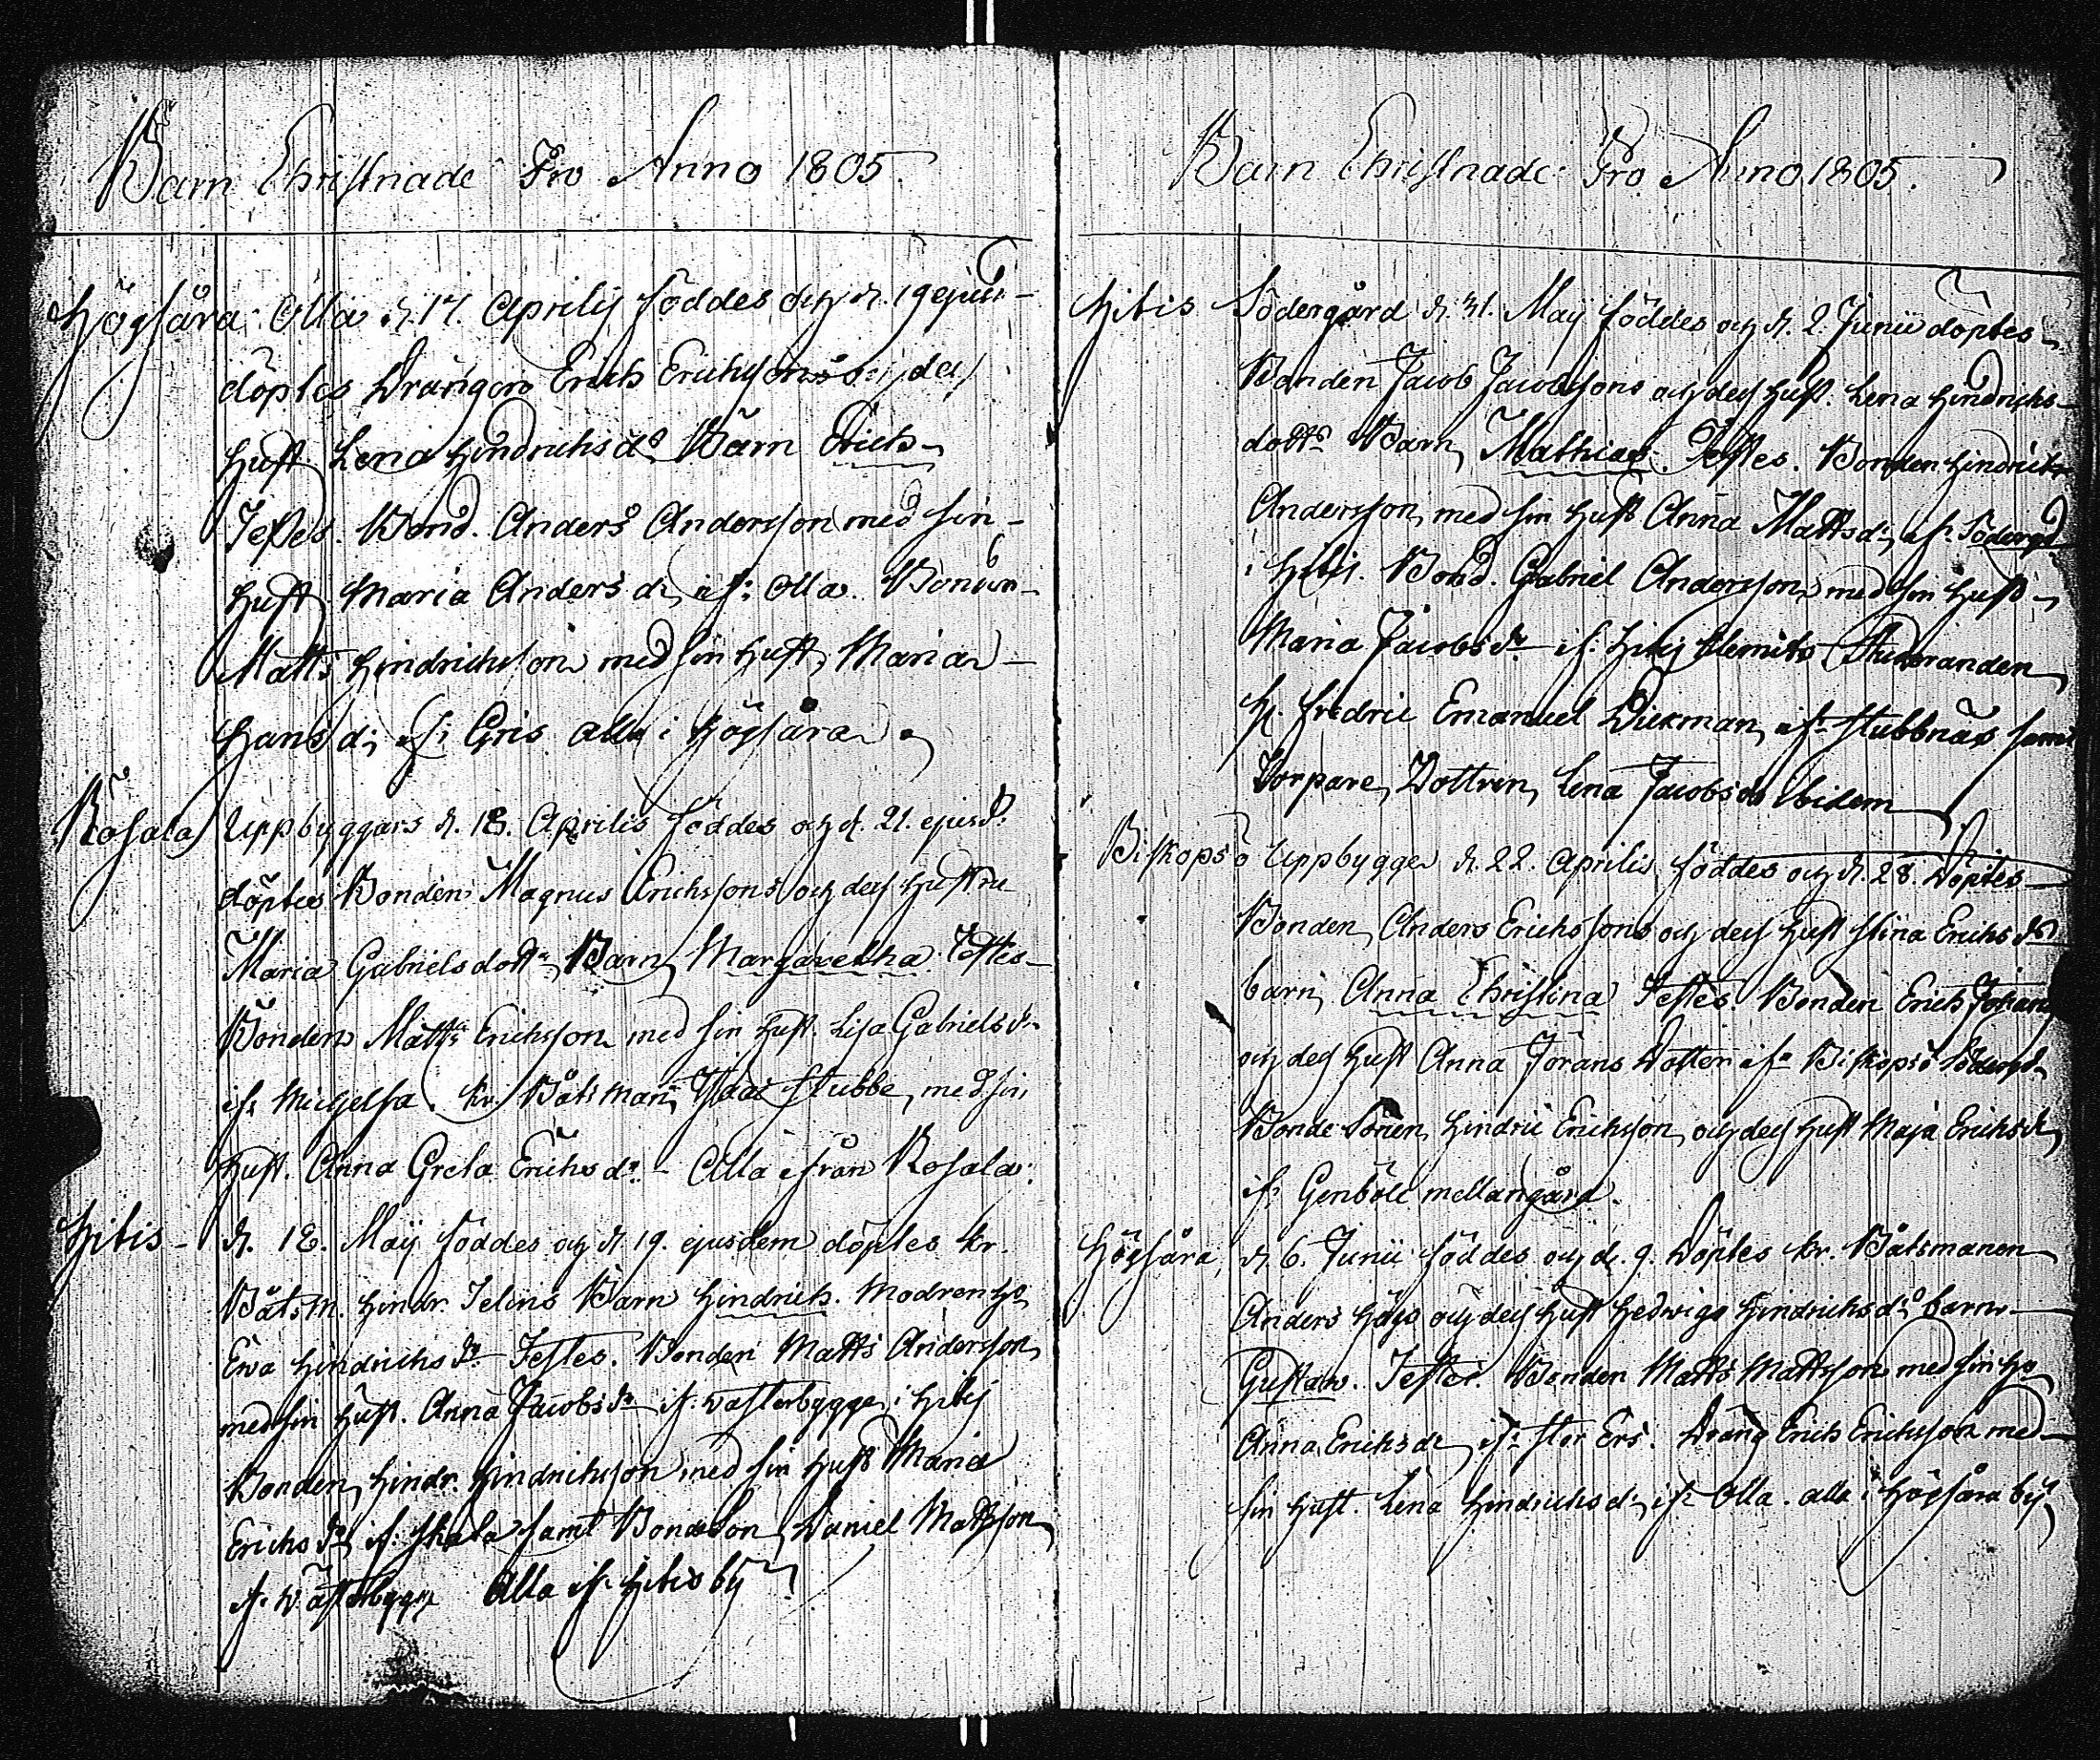 Barn Christnade Pro Anno 1805.
Högsåra Olla d. 17. Aprilij föddes och d. 19 ejusd.
döptes Drängen Erich Erichssons och des
Hust. Lena Hindrichs dr. Barn Erich
Testes. Bond. Anders Andersson med sin
Hust. Maria Anders dr. if: Olla. Bonden
Matts Hindrichsson med sin Hust. Maria
Hans dr. if: Gris alla i Högsåra
Rosala Uppbyggars d. 18. Aprilis föddes och d. 21. ejusd.
döptes Bonden Magnus Erichssons och des Hustru
Maria Gabrielsdottr. Barn Margaretha. Testes
Bonden Matts Erichsson med sin Hust. Lisa Gabriels dr.
if: Michelsa. Kr. Båtsman Isaac Stubbe, med sin
Hust. Anna Greta Erichs dr. - Alla ifrån Rosala.
Hitis d. 18. Maij föddes och d. 19. ejusdem döptes Kr.
Båtsm. Hindr. Telins Barn Hindrich. Modren Ho
Ewa Hindrichs dr. Testes. Bonden Matts Andersson
med sin Hust. Anna Jacobs dr. if. Wästerbygge i Hitis
Bonden Hindr. Hindrichsson med sin Hust. Maria
Erichs dr. if: Skala samt Bondeson Daniel Mattsson
if. Wästerbygge Alla if. Hitis by
Barn Christnade Pro Anno 1805.
Hitis Södergård d. 31. Maij föddes och d. 2. Junii döptes
Bonden Jacob Jacobssons och des Hust. Lena Hindrichs
dottr. Barn Mathias. Testes. Bonden Hindrich
Andersson, med sin Hust Anna Matts dr. if. Södergd
i Hitis. Bond. Gabriel Andersson med sin Hust
Maria Jacobs dr. if: Hitis Studeranden
H. Fredric Emanuel Dickman, if. Stubbnäs samt
Torpare Dottren, Lena Jacobs dr. ibidem
Biskopsö Uppbygge d. 22. Aprilis föddes och d. 28. Döptes
Bonden Anders Erichssons och des Hust Stina Erichs dr
barn, Anna Christina Testes. Bonden Erich Johans
och des Hust Anna Jörans Dotter if. Biskopsö Södergd.
Bonde Sonen Hindric Erichsson och des Hust Maja Erichs dr
if. Genböle mellangård.
Högsåra, d. 6. Junii föddes och d. 9. Döptes Kr. Båtsmanen
Anders Högs och des Hust Hedwigs Hindrichs dr. barn
Gustaw. Testes. Bonden Matts Mattsson med sin Ho
Anna Erichs dr. if. Stor Ers. Dräng Erich Erichsson med
sin Hust. Lena Hindrichs dr. if. Olla. alla i Högsåra by